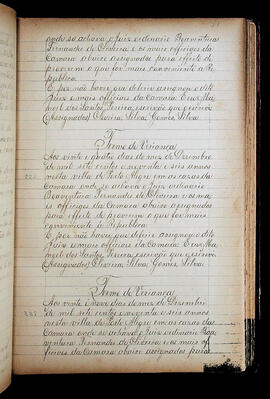 onde se achava o Juiz ordinario Boaventura
Fernandes de Oliveira e os mais officiaes da
Camara abaixo assignados para effeito de
proverem o que for mais conveniente a Re-
publica.
E por não haver que deferir assignou o dito
Juiz e mais officiaes da Camara. E eu Ma-
noel dos Santos Pereira, escrivão que o escrevi.
(Assignados) Oliveira, Silva, Gomes, Silva.
Termo de Vereança
Aos vinte e quatro dias do mez de Dezembro
de mil sete centos e noventa e seis annos
nesta villa de Porto Alegre em as casas da
Camara onde se achava o Juiz ordinario
Boaventura Fernandes de Oliveira e os ma-
is officiaes da Camara abaixo assignados
para effeito de proverem o que for mais
conveniente á Republica.
E por não haver que deferir assignou o dito
Juiz e mais officiaes da Camara. E eu Ma-
noel dos Santos Pereira, escrivão que o escrevi.
(Assignados) Oliveira, Silva, Gomes, Silva.
Termo de Vereança
Aos vinte e nove dias do mez de Dezembro
de mil sete centos e noventa e seis annos
nesta villa de Porto Alegre em as casas da
Camara onde se achava o Juiz ordinario Boa-
ventura Fernandes de Oliveira e os mais of-
ficiaes da Camara abaixo assignados para